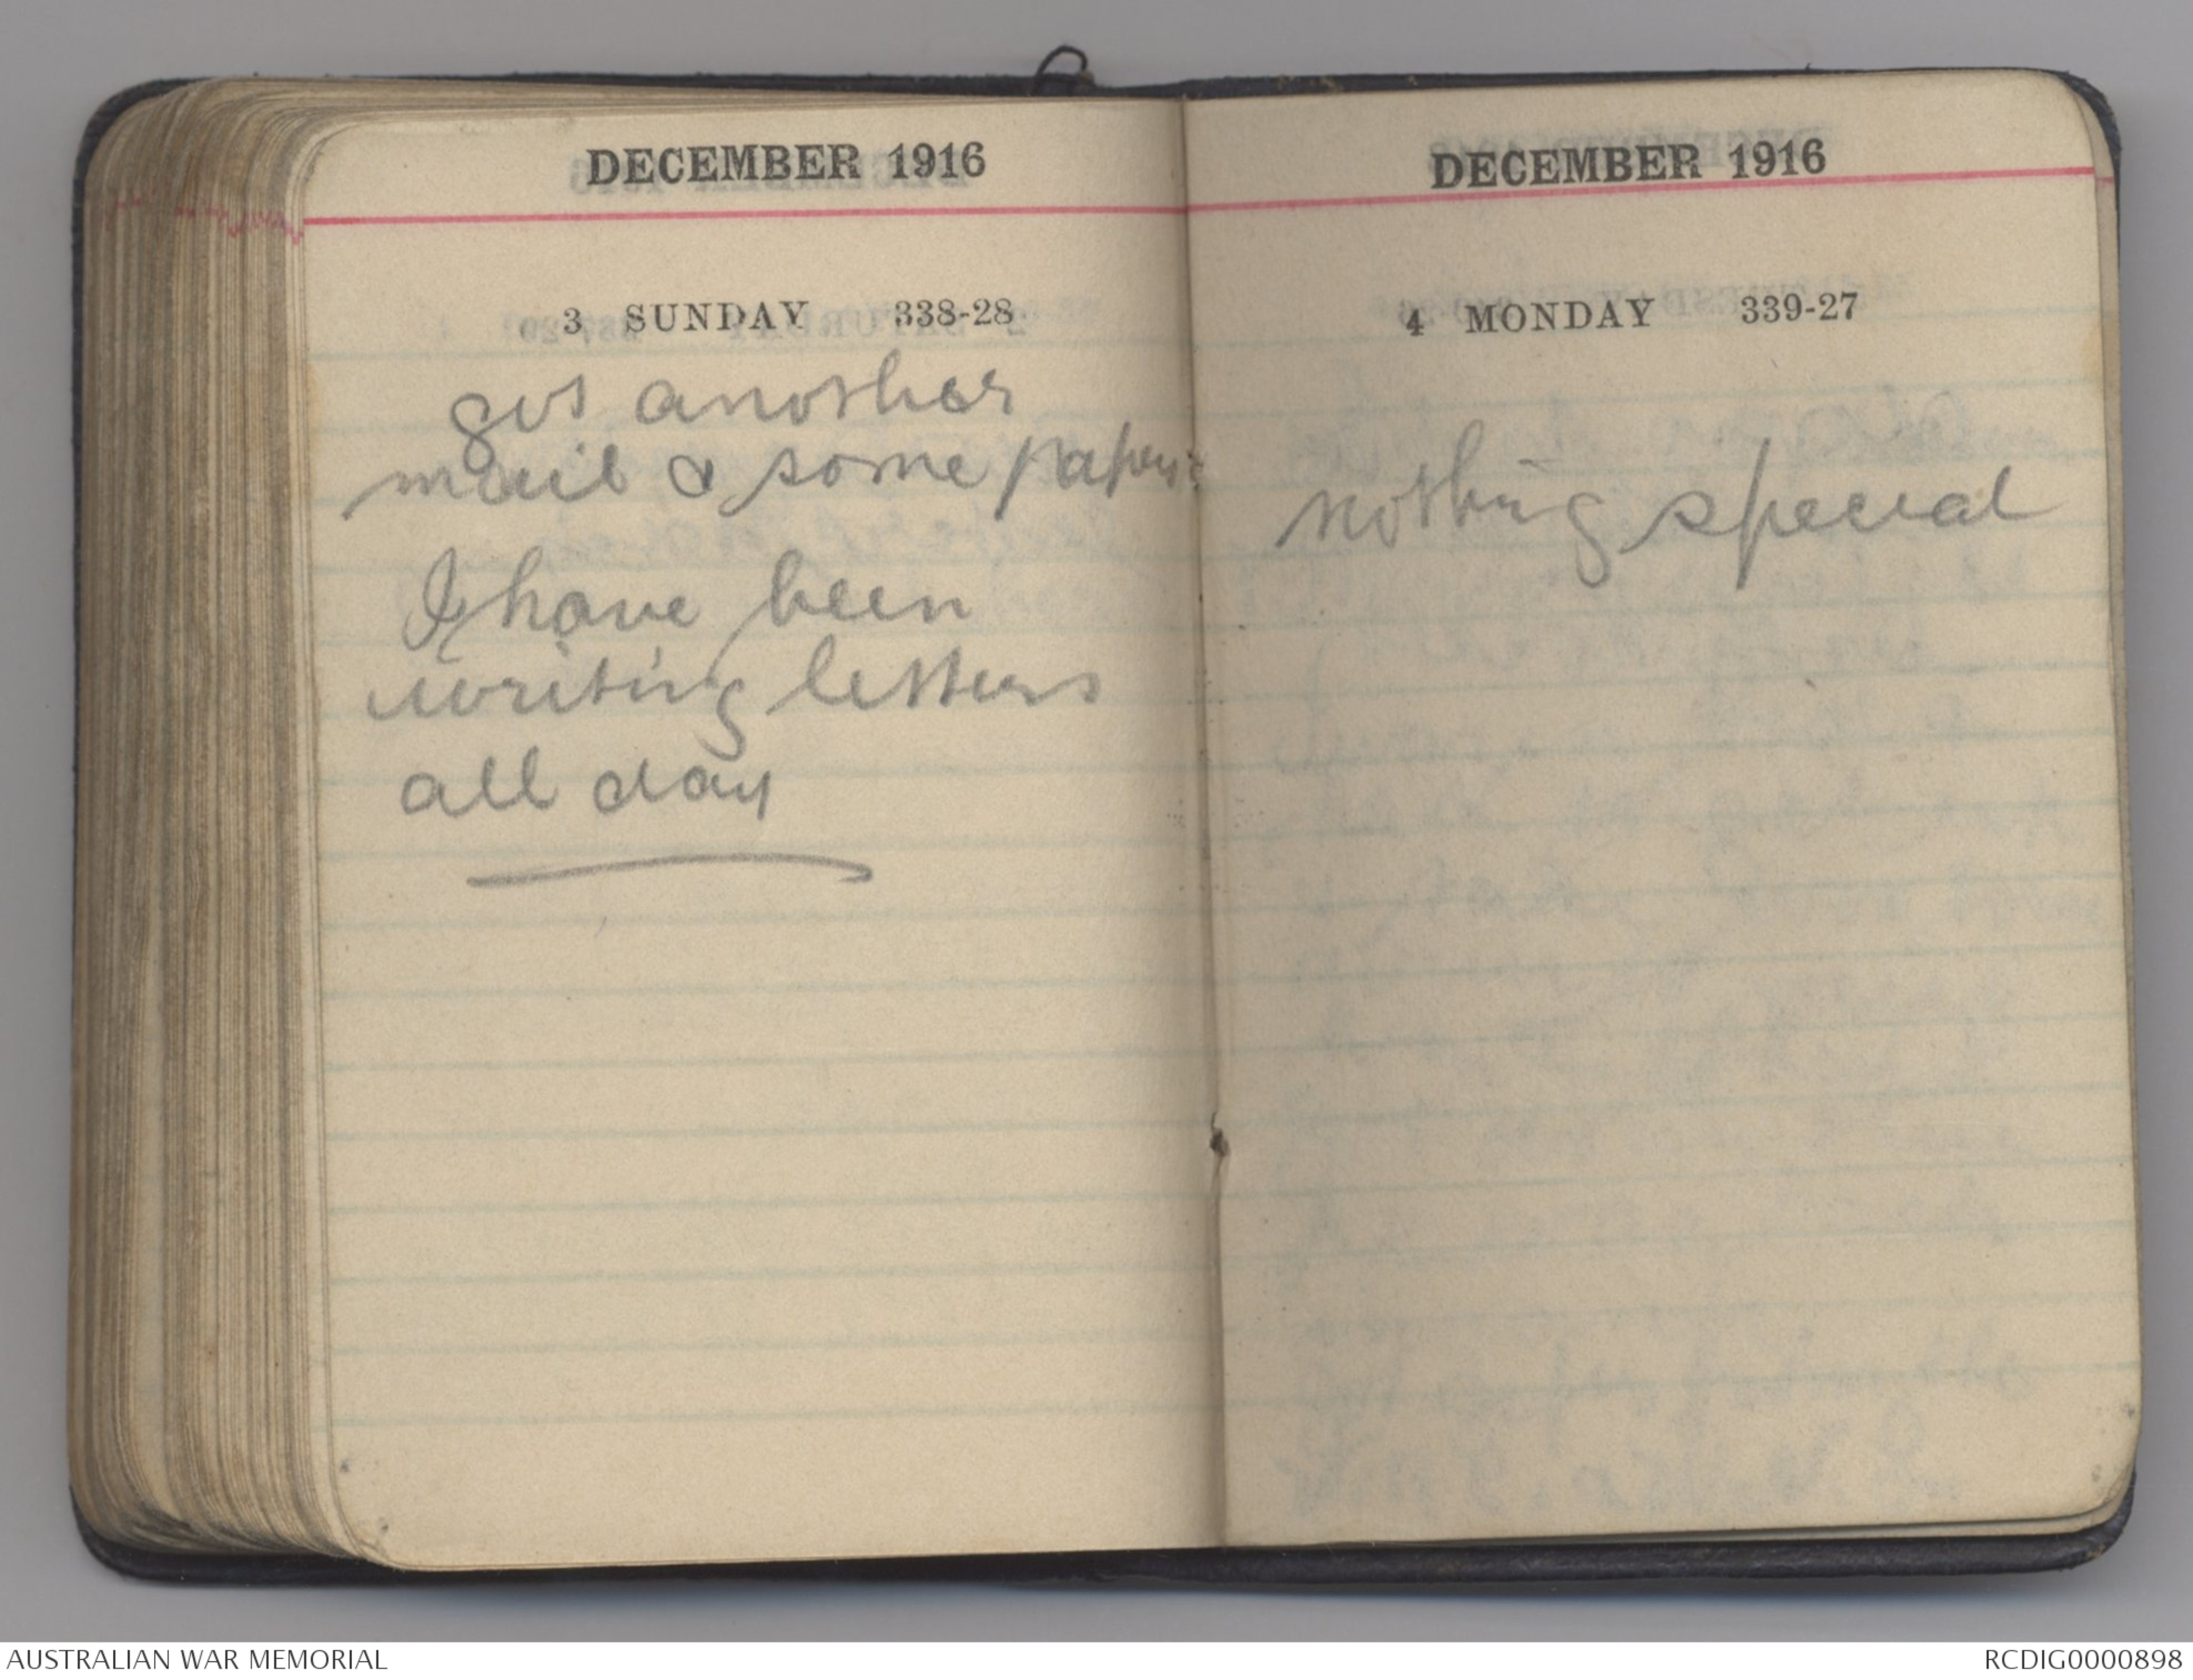 DECEMBER 1916
3 SUNDAY 338-28
got another
mail & some papers
I have been
writing letters
all day
DECEMBER 1916
4 MONDAY 339-27
nothing special
AUSTRALIAN WAR MEMORIAL
RCDIG0000898